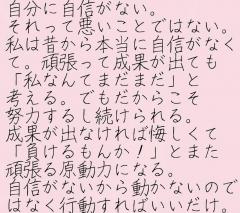 自分に自信がない。
それって悪いことではない。
私は昔から本当に自信がなく
て。頑張って成果が出ても
「私なんてまだまだ」と
考える。でもだからこそ
努力するし続けられる。
成果が出なければ悔しくて
「負けるもんか！」とまた
頑張る原動力になる。
自信がないから動かないので
はなく行動すればいいだけ。